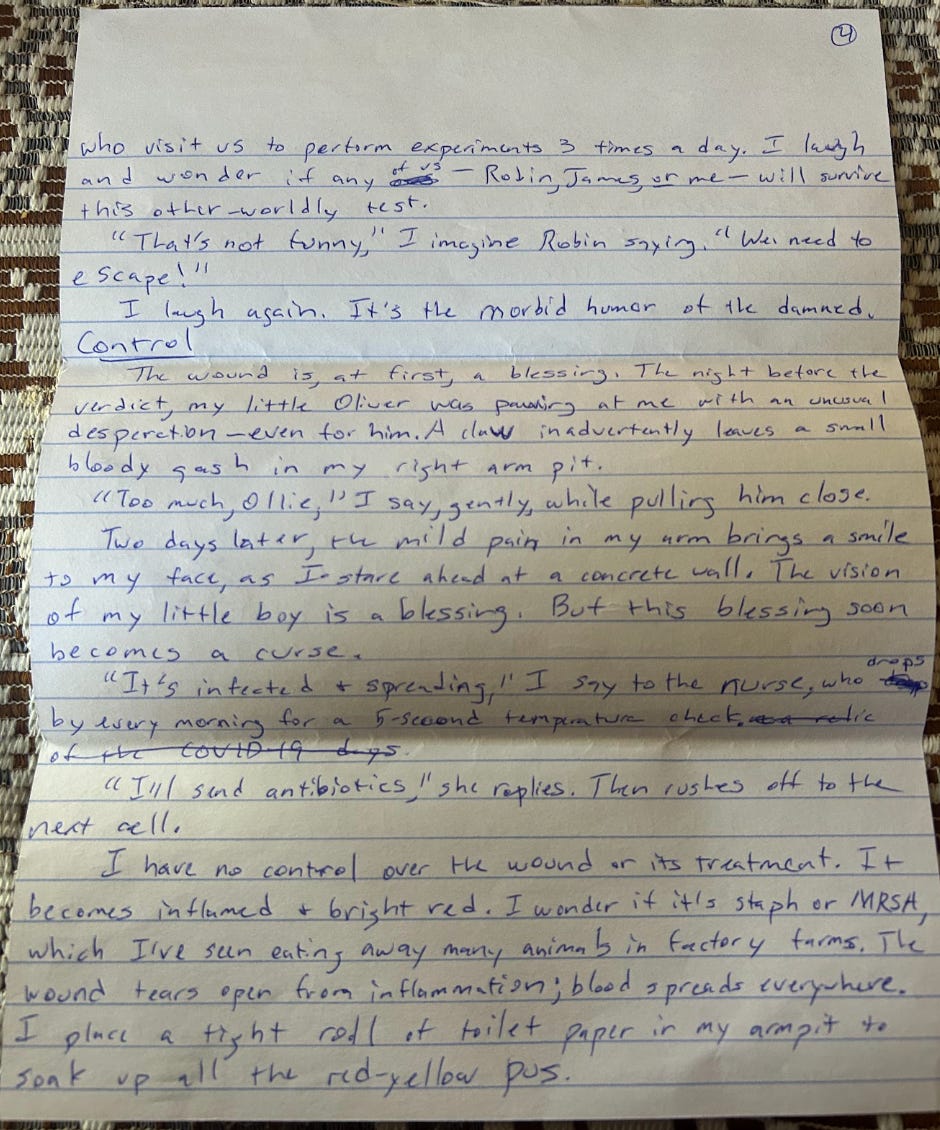 4
who visit us to perform experiments 3 times a day. I laugh
and wonder if any of us — Robin, James, or me — will survive
this other-worldly test.
"That's not funny," I imagine Robin saying. "We need to
escape!"
I laugh again. It's the morbid humor of the damned.
Control
The wound is, at first, a blessing. The night before the
verdict, my little Oliver was pawing at me with an unusual
desperation — even for him. A claw inadvertently leaves a small
bloody gash in my right arm pit.
"Too much, Ollie," I say, gently, while pulling him close.
Two days later, the mild pain in my arm brings a smile
to my face, as I stare ahead at a concrete wall. The vision
of my little boy is a blessing. But this blessing soon
becomes a curse.
"It's infected + spreading," I say to the nurse, who drops
by every morning for a 5-second temperature check. as a relic
of the COVID-19 days.
"I'll send antibiotics," she replies. Then rushes off to the
next cell.
I have no control over the wound or its treatment. It
becomes inflamed + bright red. I wonder if it's staph or MRSA,
which I've seen eating away many animals in factory farms. The
wound tears open from inflammation; blood spreads everywhere.
I place a tight roll of toilet paper in my armpit to
soak up all the red-yellow pus.